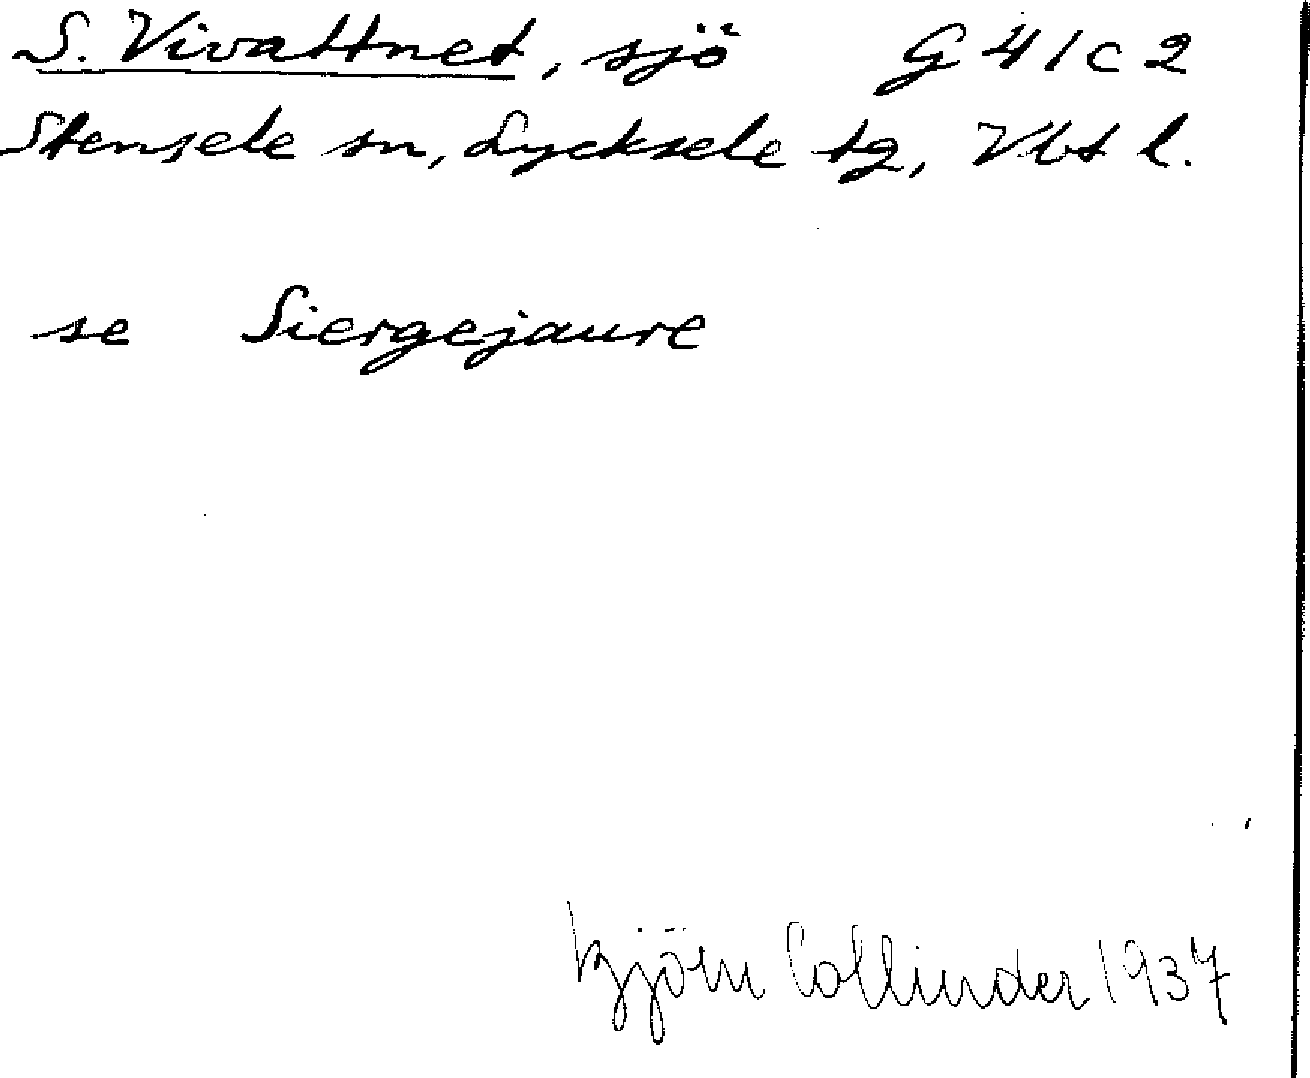 S. Vivattnet, sjö G 41 c 2
Stensele sn, Lycksele tg, Vbt l.
se Siergejaure
Björn Collinder 1937